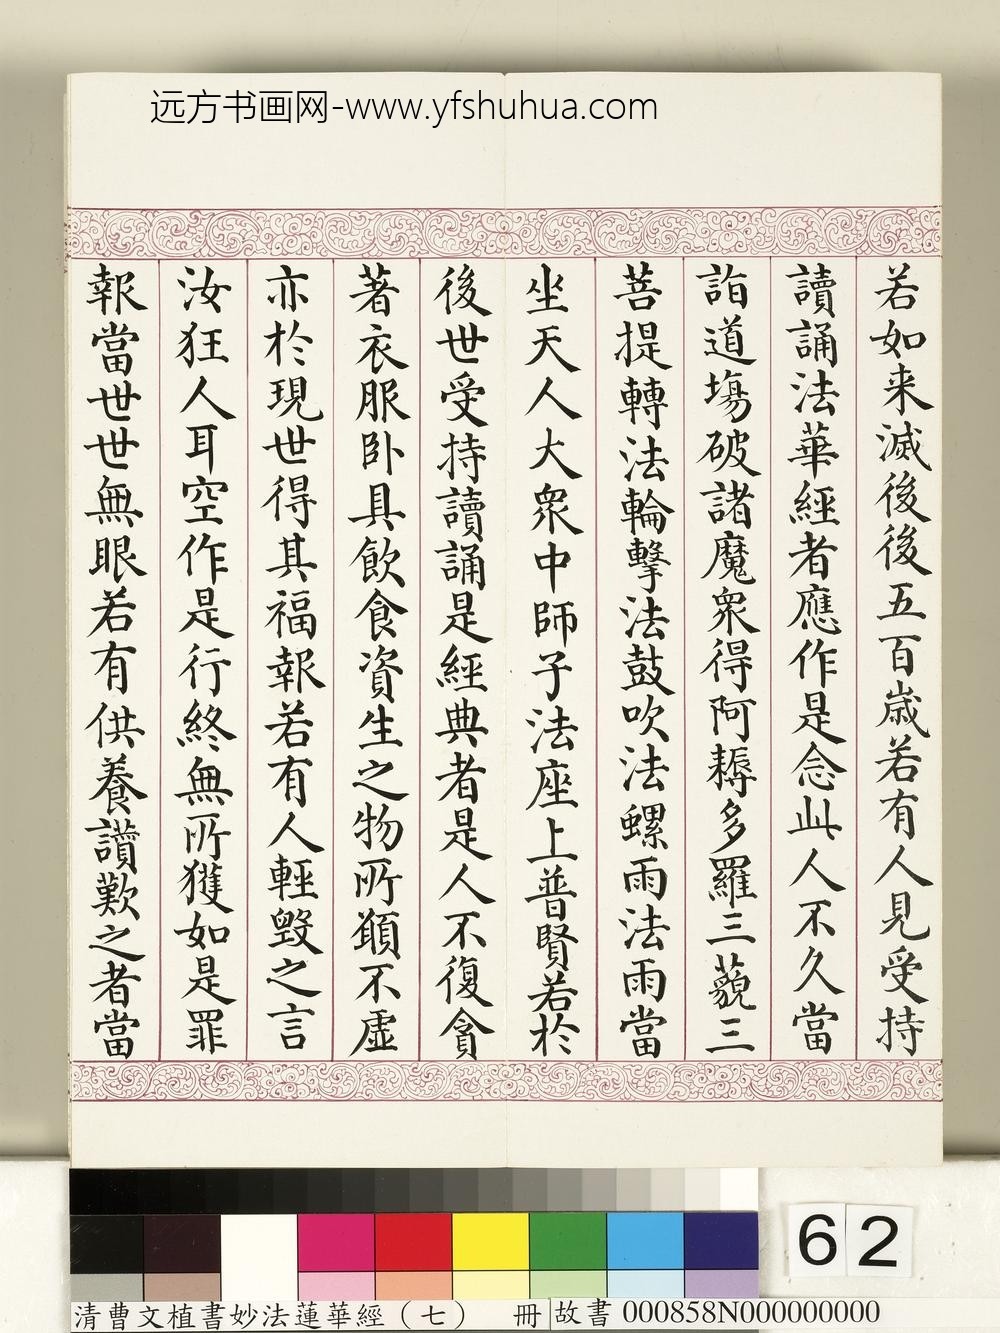 远方书画网-www.yfshuhua.com
若如来滅後後五百歳若有人見受持
讀誦法華經者應作是念此人不久當
詣道塲破諸魔衆得阿耨多羅三藐三
菩提轉法輪擊法鼓吹法螺雨法雨當
坐天人大衆中師子法座上普賢若於
後世受持讀誦是經典者是人不復貪
著衣服卧具飲食資生之物所願不虛
亦於現世得其福報若有人輕毀之言
汝狂人耳空作是行終無所獲如是罪
報當世世無眼若有供養讚歎之者當
62
清曹文植書妙法蓮華經（七） 冊 故書 000858N000000000